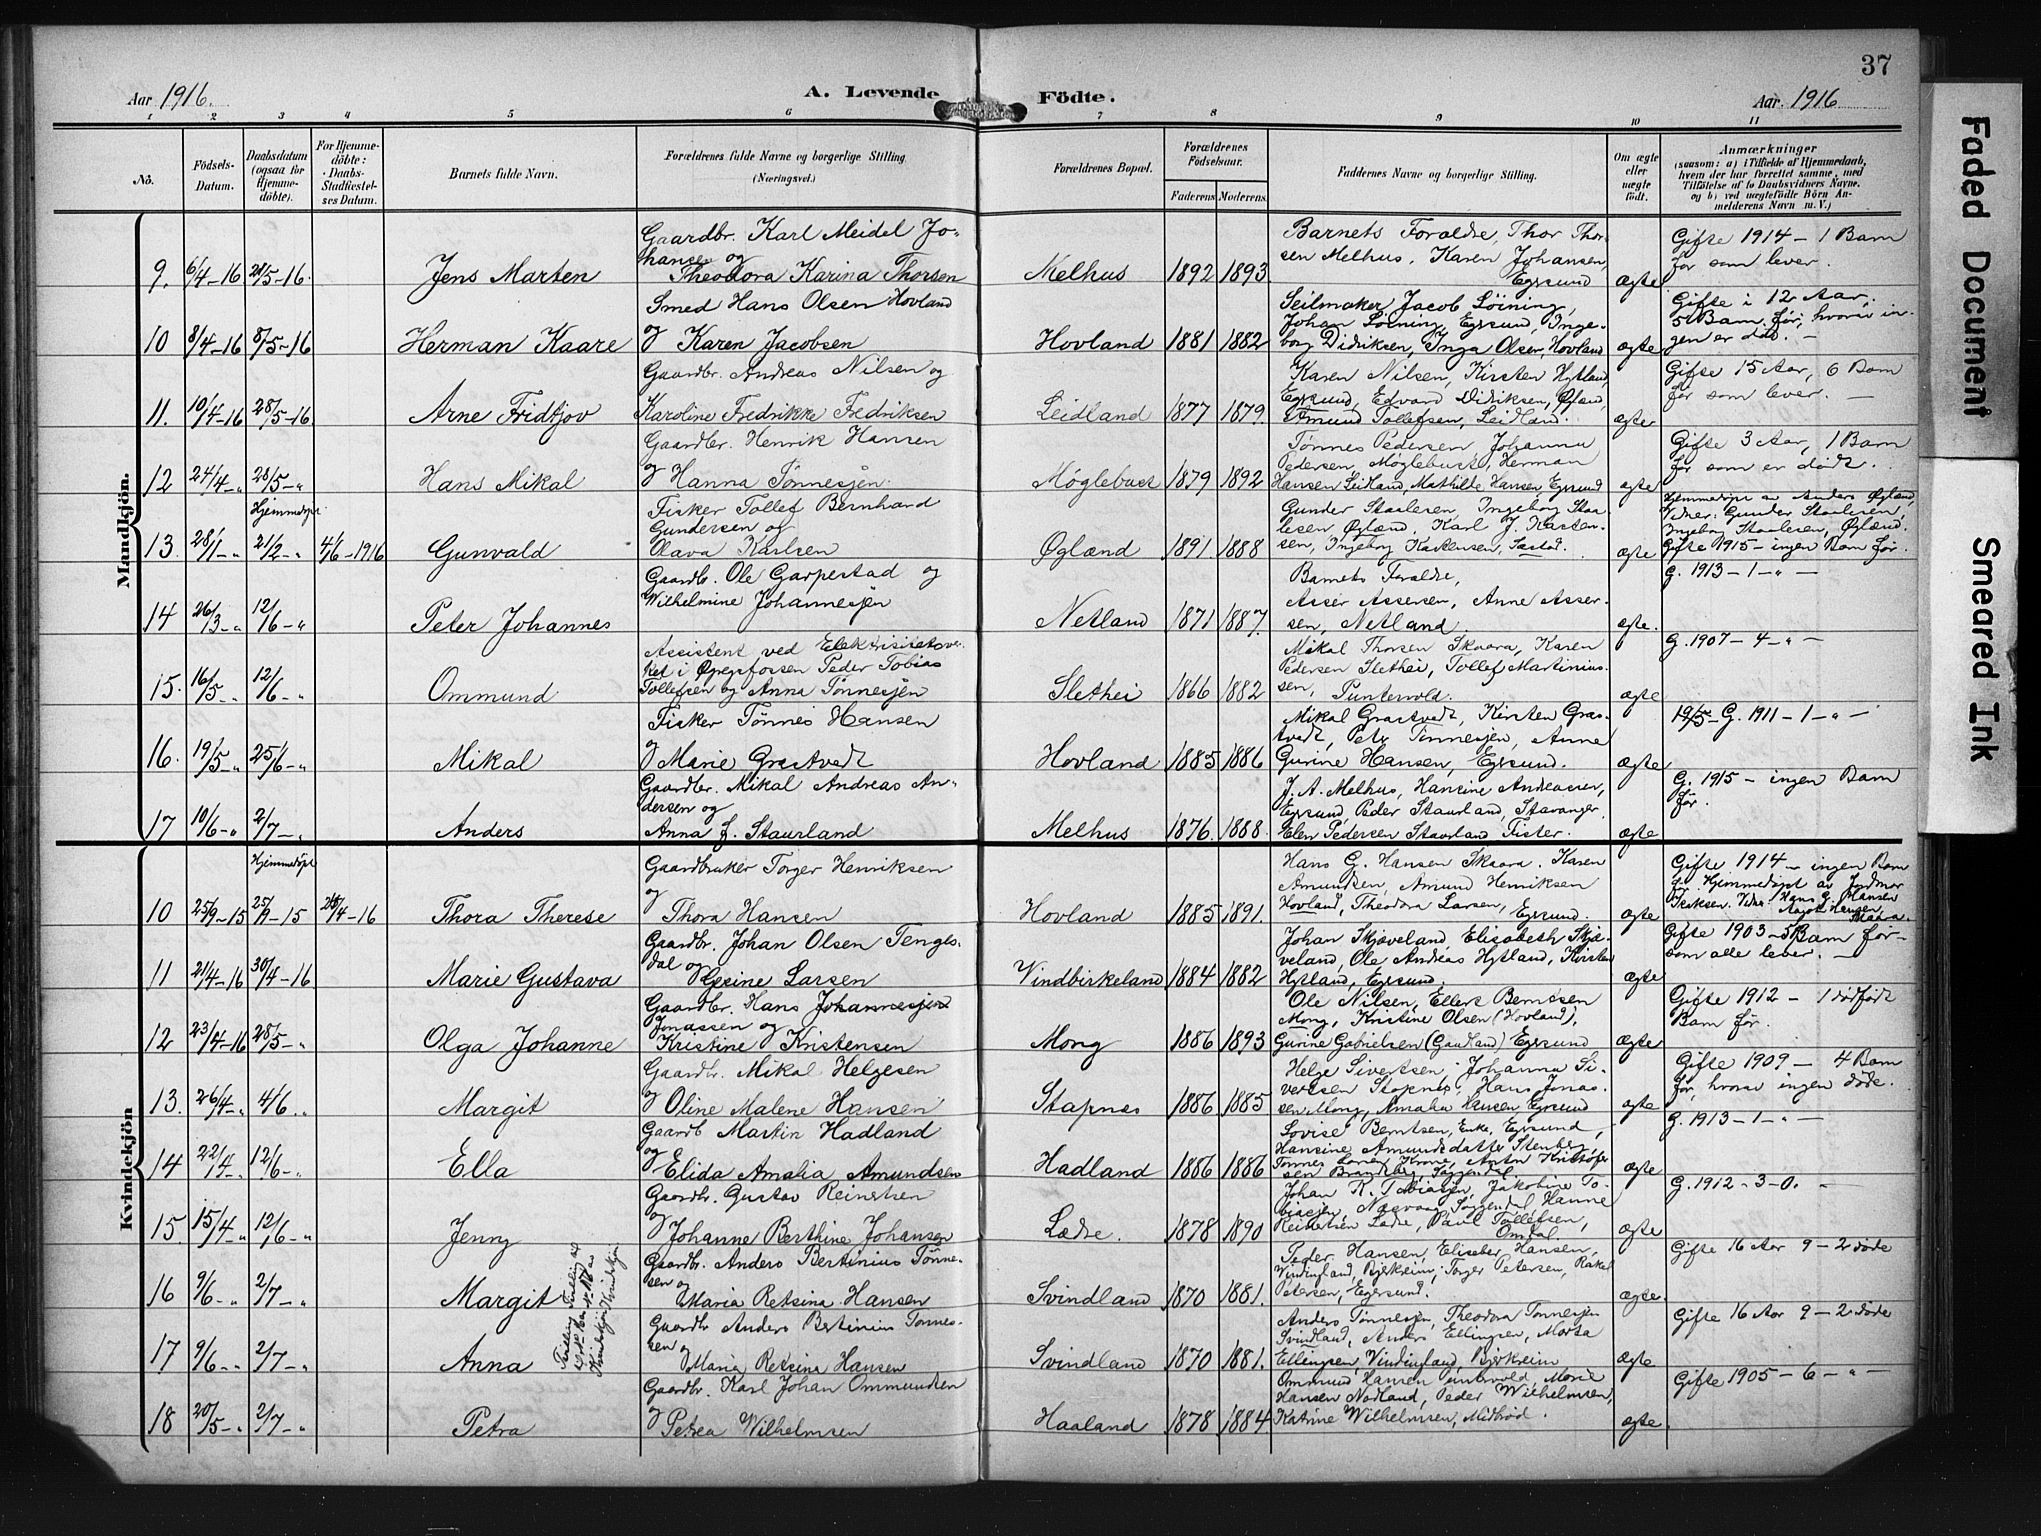 37
Aar 1916.
A. Levende Födte.
Aar 1916
1 2 3 4 5 6 7 8 9 10 11
No.
Födsels-Datum.
Daabsdatum (ogsaa for Hjemmedöbte).
For Hjemmedöbte: Daabs-Stadfæstelses Datum.
Barnets fulde Navn.
Forældrenes fulde Navne og borgerlige Stilling (Næringsvei.)
Forældrenes Bopæl.
Forældrenes Födselsaar.
Faderens Moderens
Faddernes Navne og borgerlige Stilling.
Om ægte eller uægte födt.
Anmærkninger
(saasom: a) i Tilfælde af Hjemmedaab, hvem der har forrettet samme, med Tilföielse af to Daabsvidners Navne, og b) ved uægtefödte Börn Anmelderens Navn m. V.)
Mandkjön.
9. 6/4-16 21/5-16. Jens Marten
Gaardbr. Karl Meidel Johansen og Theodora Karina Thorsen
Melhus 1892 1893
Barnets Foraldre, Thor Thorsen Melhus, Karen Johansen, Egrsund
ægte
Gifte 1914 - 1 Barn før som lever.
10 8/4-16 8/5-16 Herman Kaare
Smed Hans Olsen Hovland og Karen Jacobsen
Hovland 1881 1882
Seilmaker Jacob Løining, Johan Løining, Egrsund, Ingeborg Didriksen, Inga Olsen, Hovland
ægte
Gifte i 12 Aar, 5 Barn før, hvorav ingen er død. -
11. 10/4-16 28/5-16. Arne Fridtjov
Gaardbr. Andreas Nilsen og Karoline Fredrikke Fredriksen
Leidland 1877 1879.
Karen Nilsen, Kirsten Hytland, Egrsund, Edvard Didriksen, Øgland, Amund Tollefsen, Leidland.
ægte
Gifte 15 Aar, 6 Barn før som lever. -
12 24/4-" 28/5-" Hans Mikal
Gaardbr. Henrik Hansen og Hanna Tønnesjen
Møglebust 1879 1892
Tønnes Pedersen Johanna Pedersen, Møglebust, Herman Hansen Leidland, Mathilde Hansen Egrsund
ægte
Gifte 3 Aar, 1 Barn før som er dødt.
13. 28/1-" Hjemmedøpt 21/2-" 4/6-1916 Gunvald
Fisker Tollef Bernhard Gundersen og Olava Karlsen
Øgland 1891 1888
Gunder Staalesen, Ingeborg Staalesen Øgland, Karl J. Karstensen, Ingeborg Karstensen,
ægte
Hjemmedøpt av Anders Øgland, Vidner: Gunder Staalesen, Ingeborg Staalesen, Øgland.
Gifte 1915 - ingen Barn før.
14 26/3-" 12/6-" Peter Johannes
Gaardb. Ole Garpestad og Wilhelmine Johannesjen
Netland 1871 1887.
Barnets Foraldre, Asser Assersen, Anne Assersen, Netland.
ægte.
G. 1913 - 1 - " -
15. 16/5-" 12/6-" Ommund
Assistent ved Elektrisitetsverket i Øgreyfossen Peder Tobias Tollefsen og Anna Tønnesjen
Slethei 1866 1882
Mikal Thorsen Skaara, Karen Pedersen Slethei, Tollef Martiniussen, Puntervold.
ægte
G. 1907 - 4 - " -
16. 19/5-" 25/6-" Mikal
Fisker Tønnes Hansen og Marie Grastvedt
Hovland 1885 1886
Mikal Grastvedt, Kirsten Grastvedt, Petr Tønnesjen, Anne Gurine Hansen, Egrsund.
ægte
19/5- G. 1911 - 1 - " -
17 10/6-" 2/7-" Anders
Gaardbr. Mikal Andreas Andersen og Anna J. Staurland
Melhus 1876. 1888.
J. A. Melhus, Hansine Andreassen, Egrsund, Peder Staurland, Stavanger, Elen Pedersen Staurland Fister.
ægte
G. 1915 - ingen Barn før.
Kvindekjön
10 25/9-15 Hjemmedøpt 25/9-15 26/4-16 Thora Therese
Gaardbruker Torger Henriksen og Thora Hansen
Hovland 1885 1891.
Hans G. Hansen Skaara. Karen Amundsen, Amund Henriksen Hovland, Theodora Larsen, Egrsund.
ægte
Gifte 1914 - ingen Barn før. Hjemmedøpt av Jordmor Isaksen. Vidner: Hans G. Hansen Aagot Hansen, Skaara.
11 21/4-16 30/4-16 Marie Gustava
Gaardbr. Johan Olsen Tengesdal og Gesine Larsen
Vindbirkeland 1884 1882
Johan Skjæveland, Elisabeth Skjæveland, Ole Andreas Hytland, Kirsten Hytland, Egrsund.
ægte
Gifte 1903 - 5 Barn før - som alle lever. -
12 23/4-16 28/5-" Olga Johanne
Gaardbr. Hans Johannesjen Jonassen og Kristine Kristensen
Mong 1886 1893
Ole Nilsen, Ellert Berntsen Mong, Kristine Olsen (Hovland), Gurine Gabrielsen (Gaudland) Egrsund
ægte
Gifte 1912 - 1 dødfødt Barn før.
13. 26/4-" 4/6-" Margit
Gaardbr. Mikal Helgesen og Oline Malene Hansen
Stapnes 1886 1885
Helge Sivertsen, Johanna Sivertsen Stapnes, Hans Jonassen Mong, Amalia Hansen, Egrsund
ægte
Gifte 1909 - 4 Barn før, hvorav ingen døde.
14 22/4-" 12/6-" Ella
Gaardb Martin Hadland og Elida Amalia Amundsen
Hadland 1886 1886
Lovise Berntsen, Enke, Egrsund, Hansine Amundsdatter Stenberg, Tønnes Larsen Krone, Anton Kristofersen Brandsberg, Soggendal
ægte
G. 1913 - 1 - " -
15. 15/4-" 12/6-" Jenny
Gaardbr. Gustav Reinertsen og Johanne Berthine Johansen
Lædre. 1878 1890
Johan R. Tobiasjen, Jakobine Tobiasjen, Soggendal, Hanne Reinertsen Lædre, Paul Tollefsen, Omdal.
ægte
G. 1912 - 3 - 0. -
16 9/6-" 2/7-" Margit
Gaardbr. Anders Bertinius Tønnesen og Maria Retsina Hansen
Svindland 1870 1881.
Peder Hansen, Eliseber Hansen, Vindingland, Bjerkreim, Torger Petersen, Rakel Petersen, Egersund.
ægte.
Gifte 16 Aar 9 - 2 døde
17 9/6-" 2/7-" Anna
Gaardbr Anders Bertinius Tønnessen og Maria Retsina Hansen
Svindland 1870 1881.
Anders Tønnesjen, Theodora Tønnesjen Svindland, Anders Ellingsen, Marta Ellingsen, Vindingland, Bjerkreim
ægte
Gifte 16 Aar 9 - 2 døde
18 20/5-" 2/7-" Petra
Gaardbr. Karl Johan Ommundsen og Petrea Wilhelmsen
Haaland 1878 1884
Ommund Hansen Puntervold, Marie Hansen Nodland, Peder Wilhelmsen, Katrine Wilhelmsen, Midbrød.
ægte
Gifte 1905 - 6 - " -
Faded Document
Smeared Ink